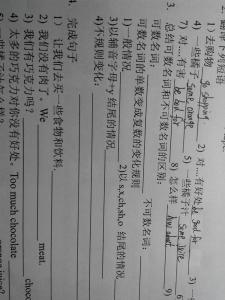 2. 翻译下列短语
1) 去购物 go shopping 2) 对....有好处 be good for 3)
4) 一些橘子 some orange 5) 一些橘子汁 some juice 6)
7) 对....有害 be bad for 8) 怎么样 how about 9)
3. 总结可数名词和不可数名词的区别:
可数名词: 不可数名词:
可数名词的单数变成复数的变化规则
1)一般情况 2)以 s,x,ch,sh,o 结尾的情况
3)以辅音字母+y 结尾的情况
4)不规则变化:
4. 完成句子
1) 让我们去买一些食物和饮料
2) 我们没有肉了 We meat.
3) 我们有巧克力吗? choc
4) 太多的巧克力对你没有好处。 Too much chocolate